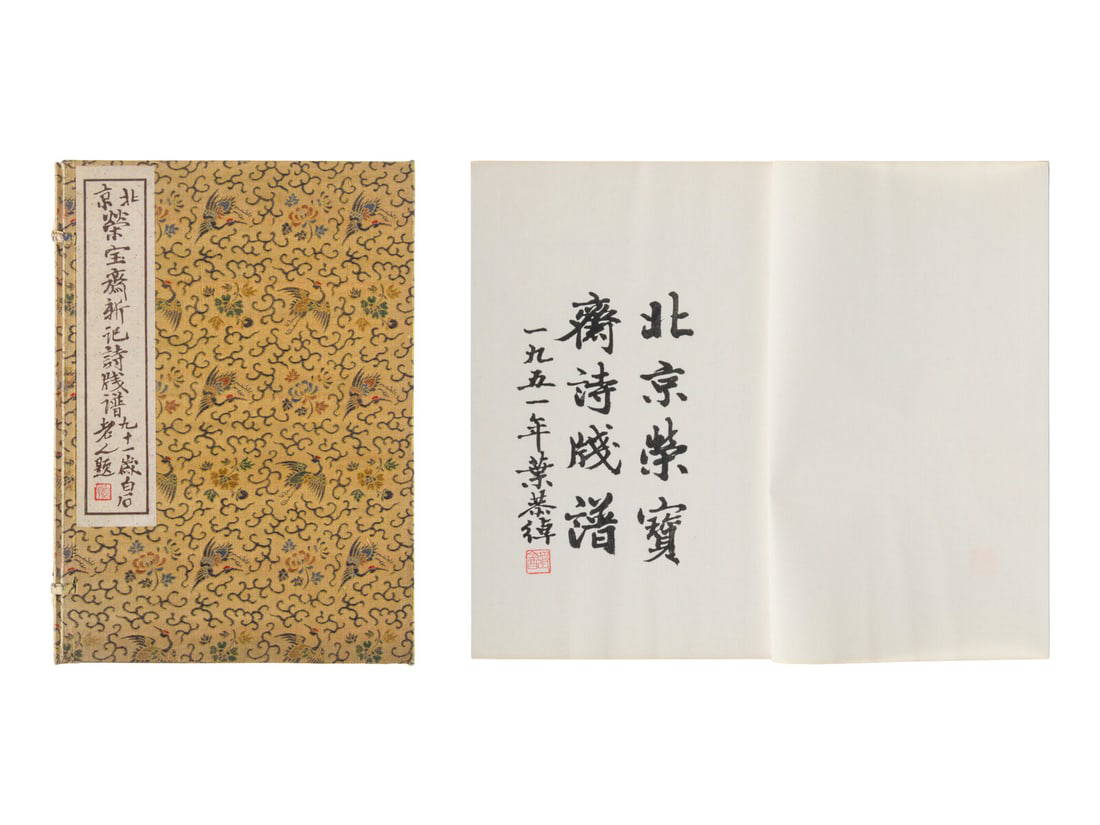 北京榮宝齋新记詩牋谱
九十一歲白石
老人題
北京榮寶
齋詩牋譜
一九五一年葉恭綽